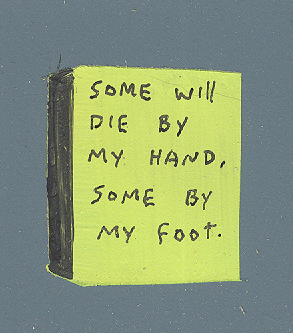 SOME WILL
DIE BY
MY HAND,
SOME BY
MY FOOT.